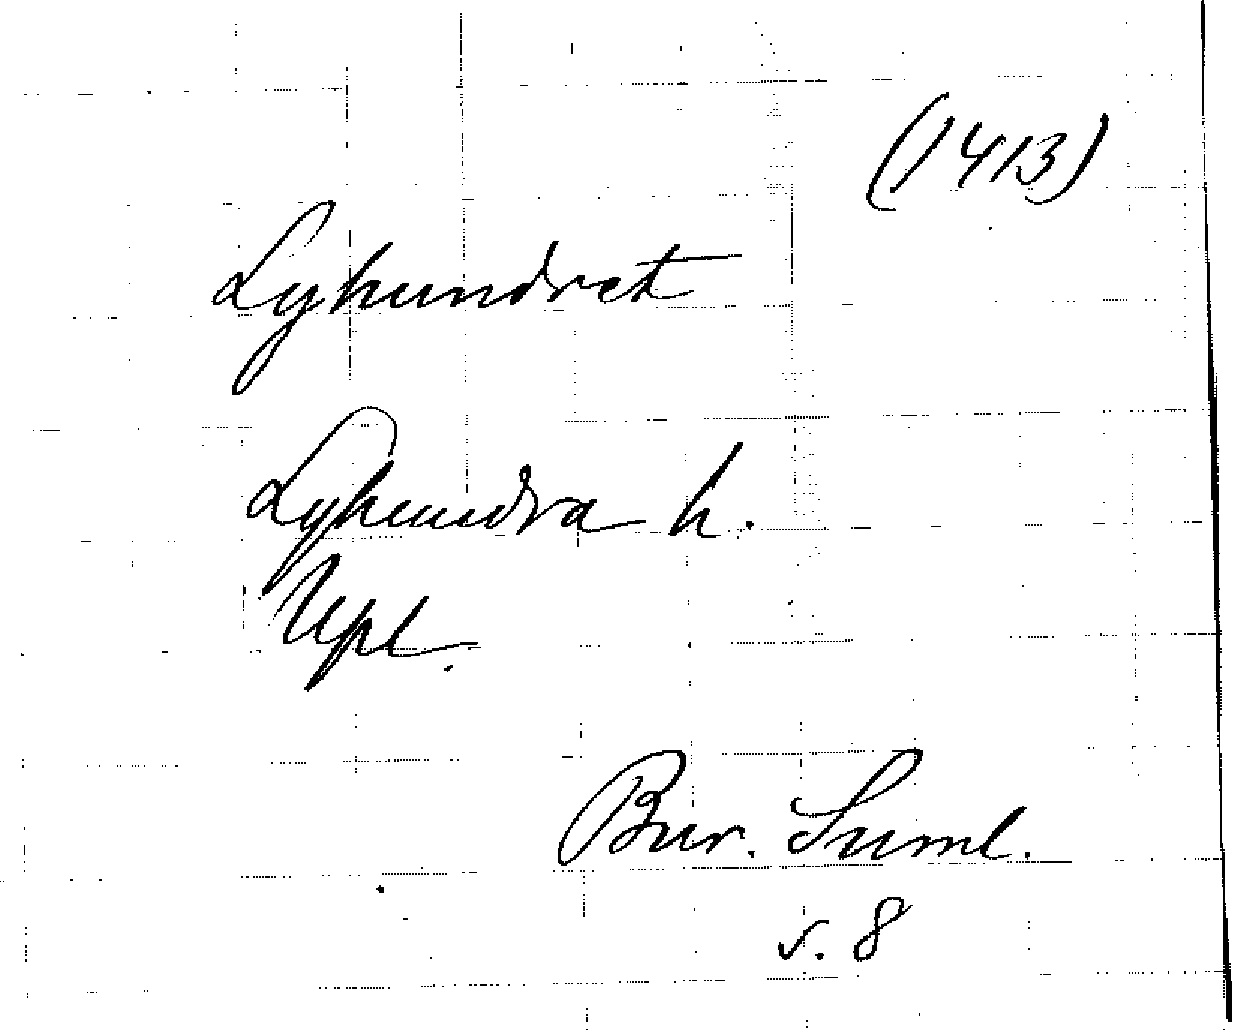 (1413)
Lyhundret
Lyhundra h.
Upl.
Bur. Suml.
s. 8